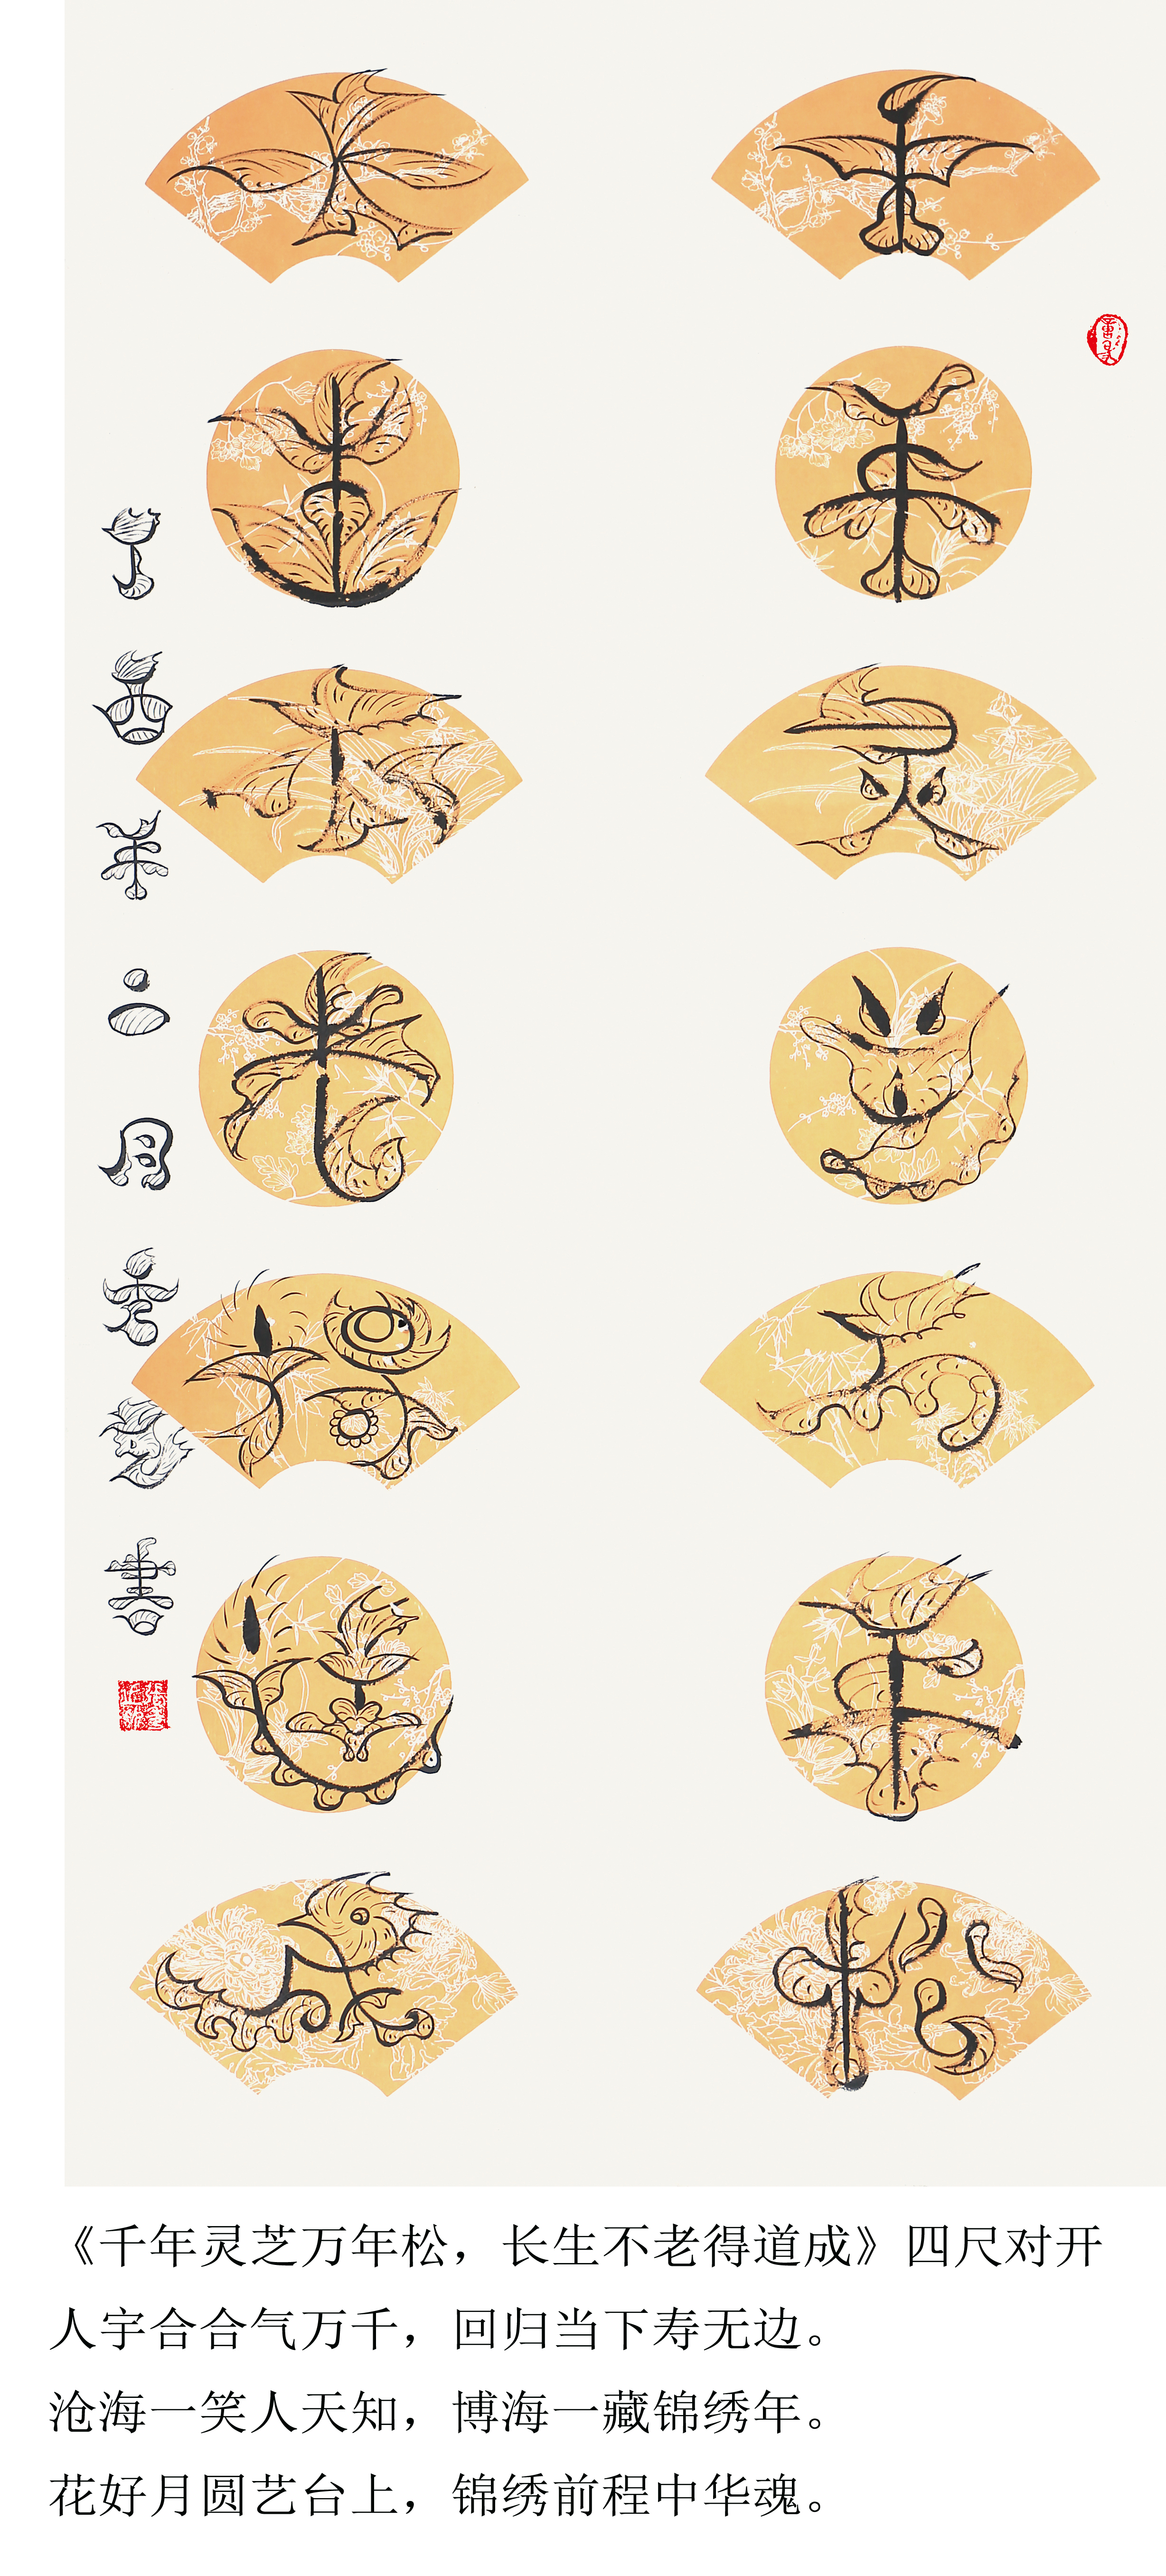 千年灵芝万年松
长生不老得道成
丁酉年二月
《千年灵芝万年松，长生不老得道成》四尺对开
人宇合合气万千，回归当下寿无边。
沧海一笑人天知，博海一藏锦绣年。
花好月圆艺台上，锦绣前程中华魂。